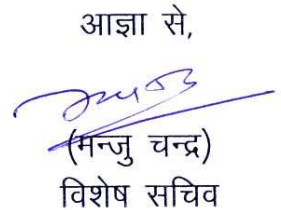 आज्ञा से,
(मन्जु चन्द्र)
विशेष सचिव